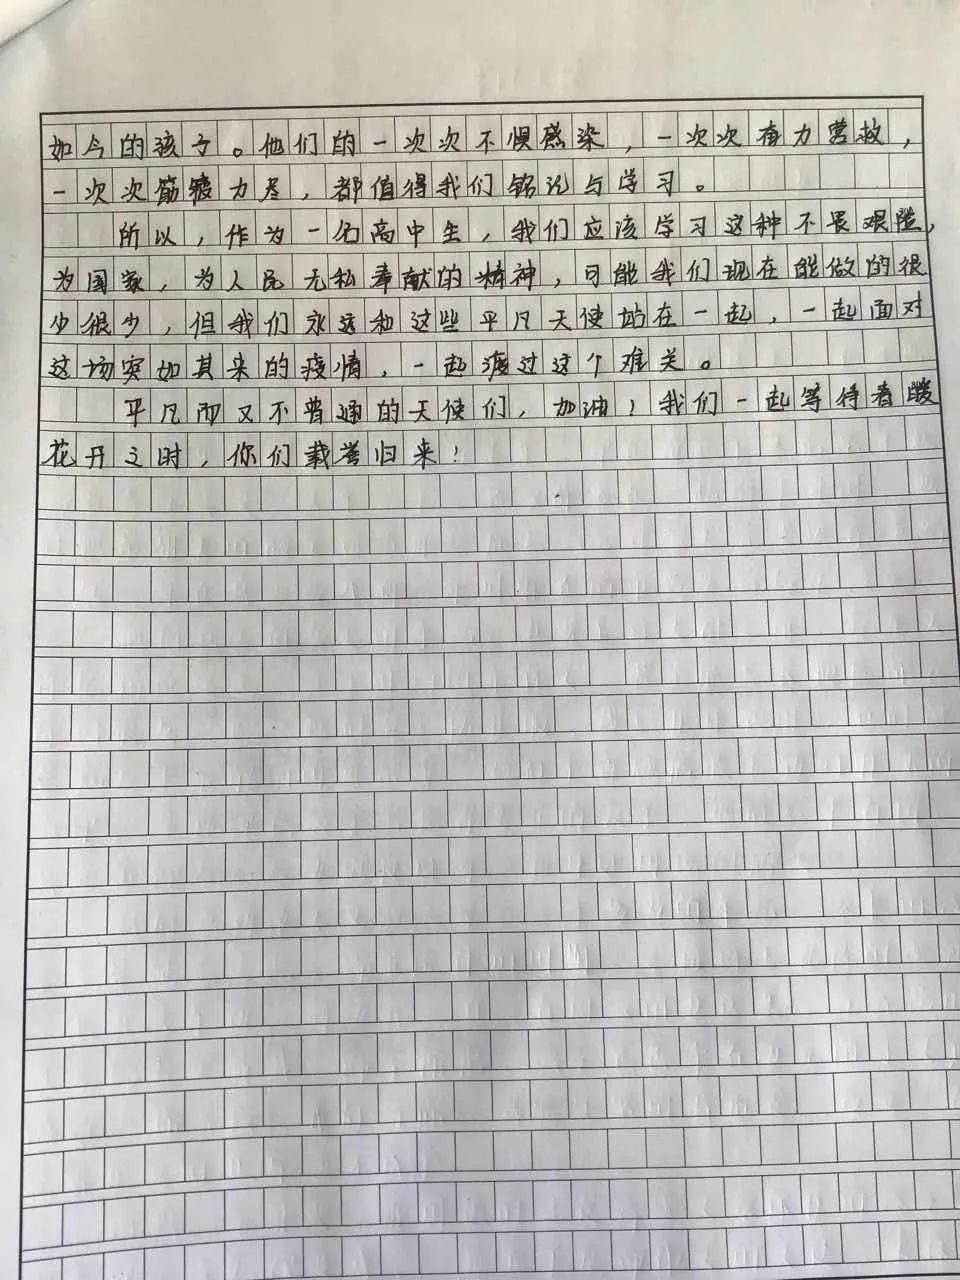 如今的孩子。他们的一次次不惧感染，一次次奋力营救，
一次次筋疲力尽，都值得我们铭记与学习。
所以，作为一名高中生，我们应该学习这种不畏艰险，
为国家，为人民无私奉献的精神，可能我们现在能做的很
少很少，但我们永远和这些平凡天使站在一起，一起面对
这场突如其来的疫情，一起渡过这个难关。
平凡而又不普通的天使们，加油！我们一起等待春暖
花开之时，你们载誉归来！